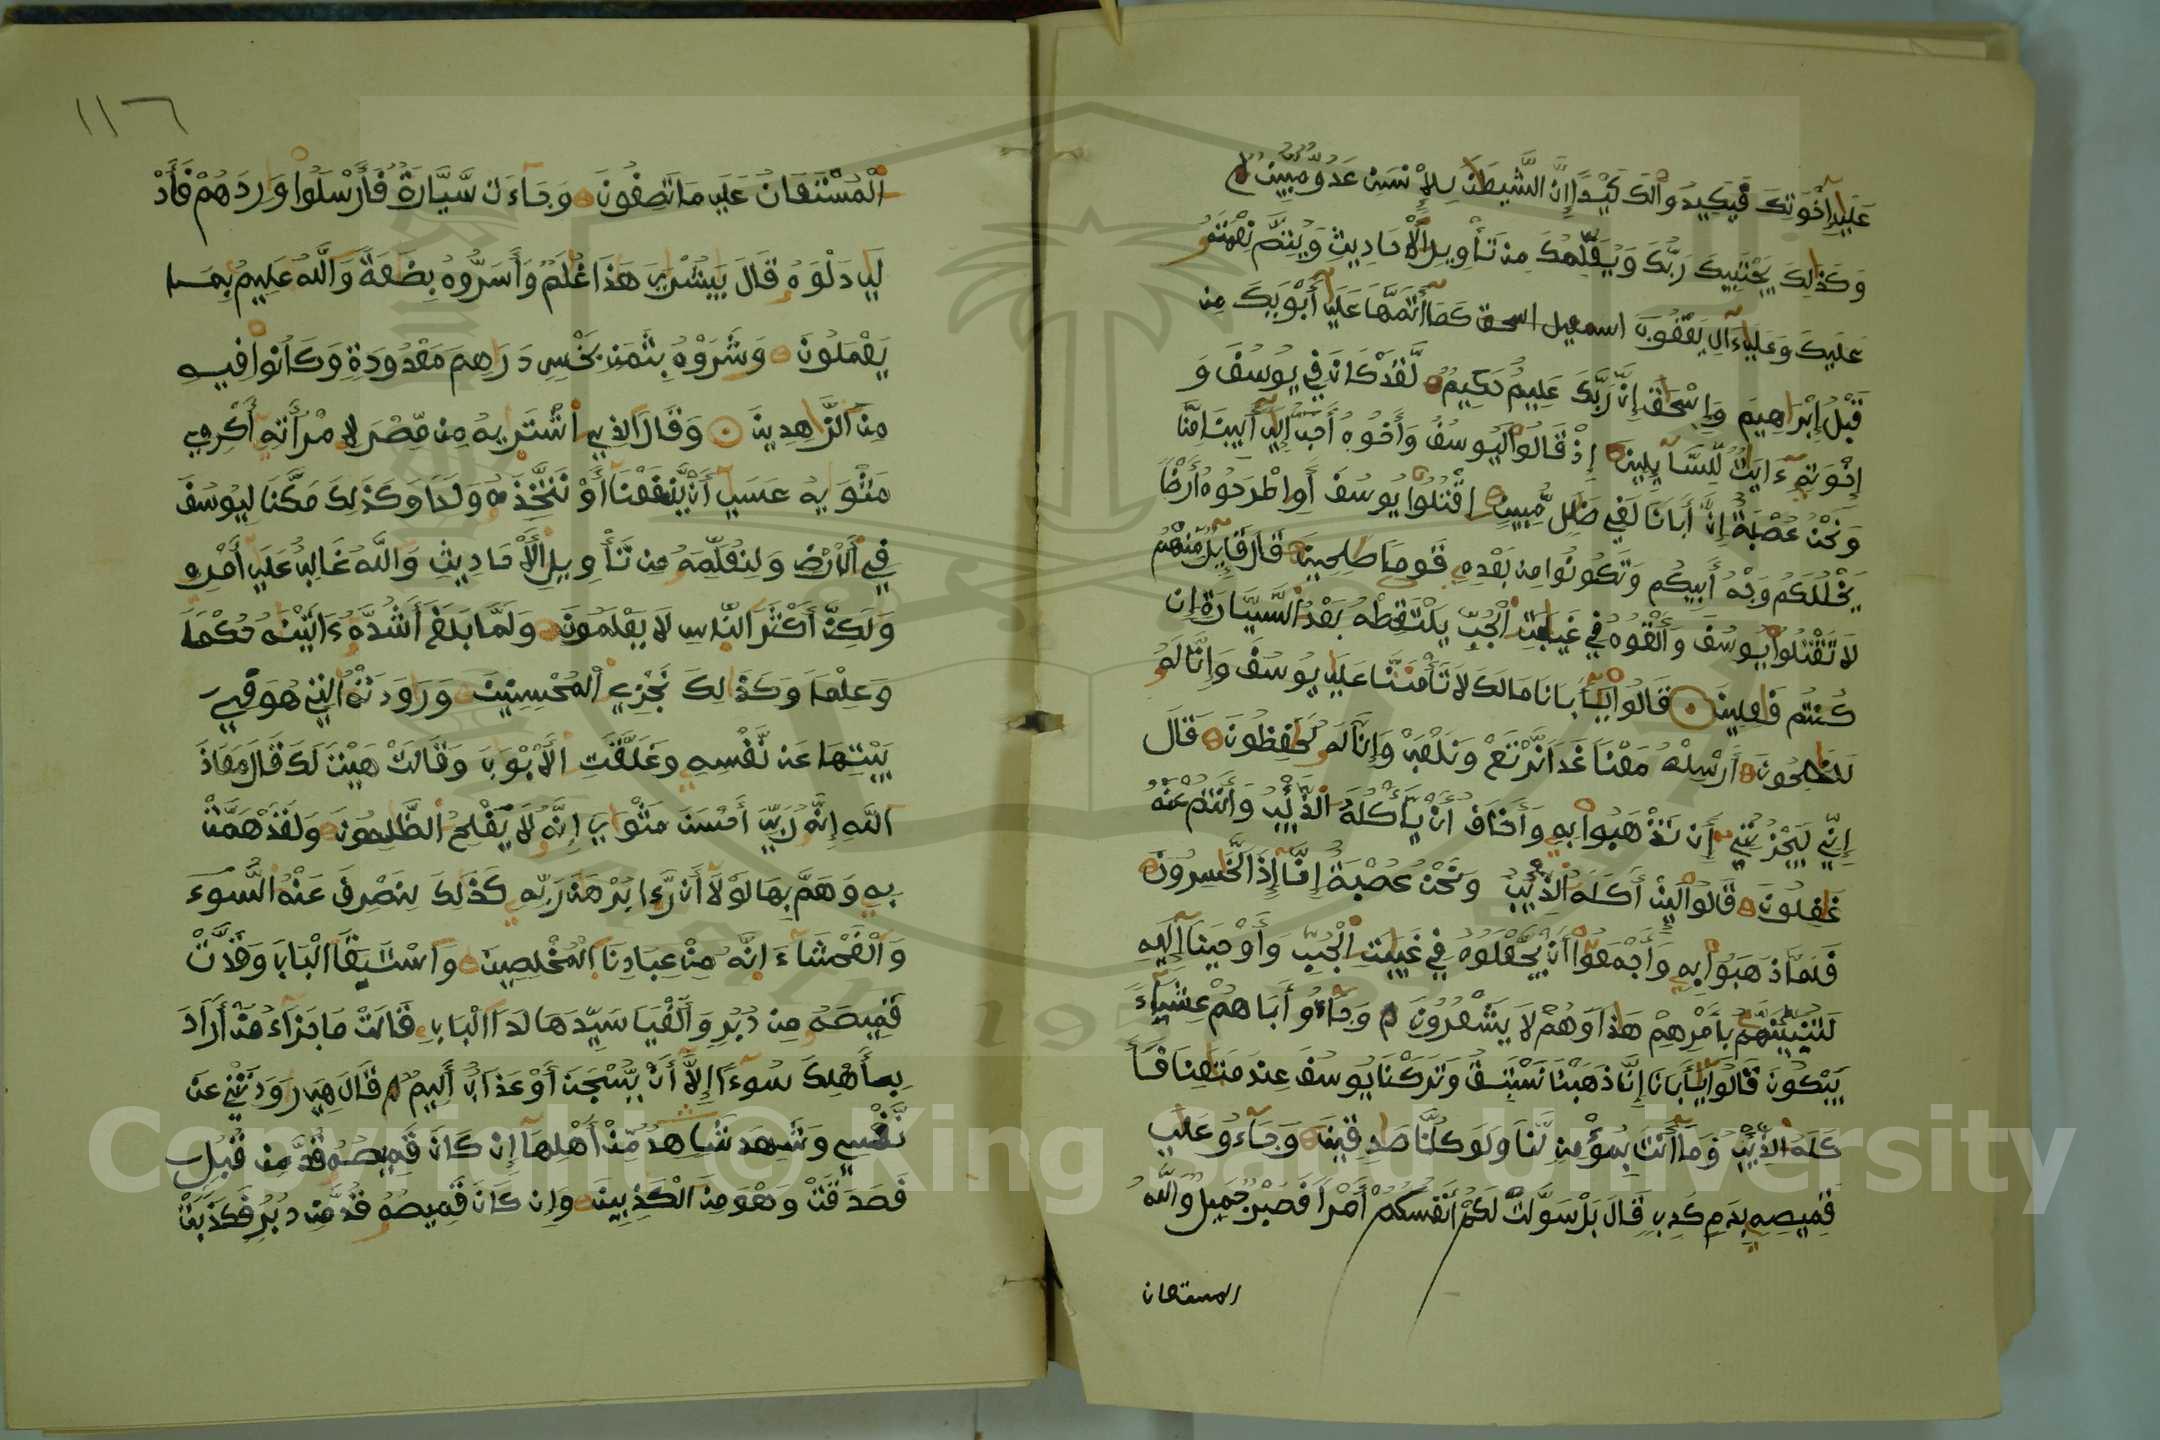 عَلَىٰ إِخْوَتِكَ فَيَكِيدُواْ لَكَ كَيْدًا إِنَّ الشَّيْطَنَ لِلْإِنسَنِ عَدُوٌّ مُّبِينٌ
وَكَذَلِكَ يَجْتَبِيكَ رَبُّكَ وَيُعَلِّمُكَ مِن تَأْوِيلِ الْأَحَادِيثِ وَيُتِمُّ نِعْمَتَهُ
عَلَيْكَ وَعَلَىٰ ءَالِ يَعْقُوبَ اسمعيل اسحق كَمَا أَتَمَّهَا عَلَىٰ أَبَوَيْكَ مِن
قَبْلُ إِبْرَاهِيمَ وَإِسْحَقَ إِنَّ رَبَّكَ عَلِيمٌ حَكِيمٌ لَّقَدْ كَانَ فِي يُوسُفَ وَ
إِخْوَتِهِ ءَايَتٌ لِّلسَّآئِلِينَ إِذْ قَالُواْ لَيُوسُفُ وَأَخُوهُ أَحَبُّ إِلَىٰ أَبِينَا مِنَّا
وَنَحْنُ عُصْبَةٌ إِنَّ أَبَانَا لَفِي ضَلَلٍ مُّبِينٍ اقْتُلُواْ يُوسُفَ أَوِ اطْرَحُوهُ أَرْضًا
يَخْلُ لَكُمْ وَجْهُ أَبِيكُمْ وَتَكُونُواْ مِن بَعْدِهِ قَوْمًا صَلِحِينَ قَالَ قَآئِلٌ مِّنْهُمْ
لَا تَقْتُلُواْ يُوسُفَ وَأَلْقُوهُ فِي غَيَبَتِ الْجُبِّ يَلْتَقِطْهُ بَعْضُ السَّيَّارَةِ إِن
كُنتُمْ فَعِلِينَ قَالُواْ يَأَبَانَا مَا لَكَ لَا تَأْمَنَّا عَلَىٰ يُوسُفَ وَإِنَّا لَهُ
لَنَصِحُونَ أَرْسِلْهُ مَعَنَا غَدًا نَرْتَعْ وَنَلْعَبْ وَإِنَّا لَهُ لَحَفِظُونَ قَالَ
إِنِّي لَيَحْزُنُنِي أَن تَذْهَبُواْ بِهِ وَأَخَافُ أَنْ يَأْكُلَهُ الذِّئْبُ وَأَنتُمْ عَنْهُ
غَفِلُونَ قَالُواْ لَئِنْ أَكَلَهُ الذِّئْبُ وَنَحْنُ عُصْبَةٌ إِنَّا إِذًا لَّخَسِرُونَ
فَلَمَّا ذَهَبُواْ بِهِ وَأَجْمَعُواْ أَنْ يَجْعَلُوهُ فِي غَيَبَتِ الْجُبِّ وَأَوْحَيْنَا إِلَيْهِ
لَتُنَبِّئَنَّهُم بِأَمْرِهِمْ هَذَا وَهُمْ لَا يَشْعُرُونَ وَجَآءُو أَبَاهُمْ عِشَآءً
يَبْكُونَ قَالُواْ يَأَبَانَا إِنَّا ذَهَبْنَا نَسْتَبِقُ وَتَرَكْنَا يُوسُفَ عِندَ مَتَعِنَا فَأَ
كَلَهُ الذِّئْبُ وَمَا أَنتَ بِمُؤْمِنٍ لَّنَا وَلَوْ كُنَّا صَدِقِينَ وَجَآءُو عَلَىٰ
قَمِيصِهِ بِدَمٍ كَذِبٍ قَالَ بَلْ سَوَّلَتْ لَكُمْ أَنفُسُكُمْ أَمْرًا فَصَبْرٌ جَمِيلٌ وَاللَّهُ
المستعان
١١٦
الْمُسْتَعَانُ عَلَىٰ مَا تَصِفُونَ وَجَآءَتْ سَيَّارَةٌ فَأَرْسَلُواْ وَارِدَهُمْ فَأَدْ
لَىٰ دَلْوَهُ قَالَ يَبُشْرَىٰ هَذَا غُلَمٌ وَأَسَرُّوهُ بِضَعَةً وَاللَّهُ عَلِيمٌ بِمَا
يَعْمَلُونَ وَشَرَوْهُ بِثَمَنٍ بَخْسٍ دَرَهِمَ مَعْدُودَةٍ وَكَانُواْ فِيهِ
مِنَ الزَّاهِدِينَ وَقَالَ الَّذِي اشْتَرَىهُ مِن مِّصْرَ لِامْرَأَتِهِ أَكْرِمِي
مَثْوَىهُ عَسَىٰ أَنْ يَّنفَعَنَا أَوْ نَتَّخِذَهُ وَلَدًا وَكَذَلِكَ مَكَّنَّا لِيُوسُفَ
فِي الْأَرْضِ وَلِنُعَلِّمَهُ مِن تَأْوِيلِ الْأَحَادِيثِ وَاللَّهُ غَالِبٌ عَلَىٰ أَمْرِهِ
وَلَكِنَّ أَكْثَرَ النَّاسِ لَا يَعْلَمُونَ وَلَمَّا بَلَغَ أَشُدَّهُ ءَاتَيْنَهُ حُكْمًا
وَعِلْمًا وَكَذَلِكَ نَجْزِي الْمُحْسِنِينَ وَرَوَدَتْهُ الَّتِي هُوَ فِي
بَيْتِهَا عَن نَّفْسِهِ وَغَلَّقَتِ الْأَبْوَبَ وَقَالَتْ هَيْتَ لَكَ قَالَ مَعَاذَ
اللَّهِ إِنَّهُ رَبِّي أَحْسَنَ مَثْوَايَ إِنَّهُ لَا يُفْلِحُ الظَّلِمُونَ وَلَقَدْ هَمَّتْ
بِهِ وَهَمَّ بِهَا لَوْلَا أَن رَّءَا بُرْهَنَ رَبِّهِ كَذَلِكَ لِنَصْرِفَ عَنْهُ السُّوءَ
وَالْفَحْشَآءَ إِنَّهُ مِنْ عِبَادِنَا الْمُخْلَصِينَ وَاسْتَبَقَا الْبَابَ وَقَدَّتْ
قَمِيصَهُ مِن دُبُرٍ وَأَلْفَيَا سَيِّدَهَا لَدَا الْبَابِ قَالَتْ مَا جَزَآءُ مَنْ أَرَادَ
بِأَهْلِكَ سُوءًا إِلَّا أَنْ يُّسْجَنَ أَوْ عَذَابٌ أَلِيمٌ قَالَ هِيَ رَوَدَتْنِي عَن
نَّفْسِي وَشَهِدَ شَاهِدٌ مِّنْ أَهْلِهَا إِن كَانَ قَمِيصُهُ قُدَّ مِن قُبُلٍ
فَصَدَقَتْ وَهُوَ مِنَ الْكَذِبِينَ وَإِن كَانَ قَمِيصُهُ قُدَّ مِن دُبُرٍ فَكَذَبَتْ
Copyright © King Saud University